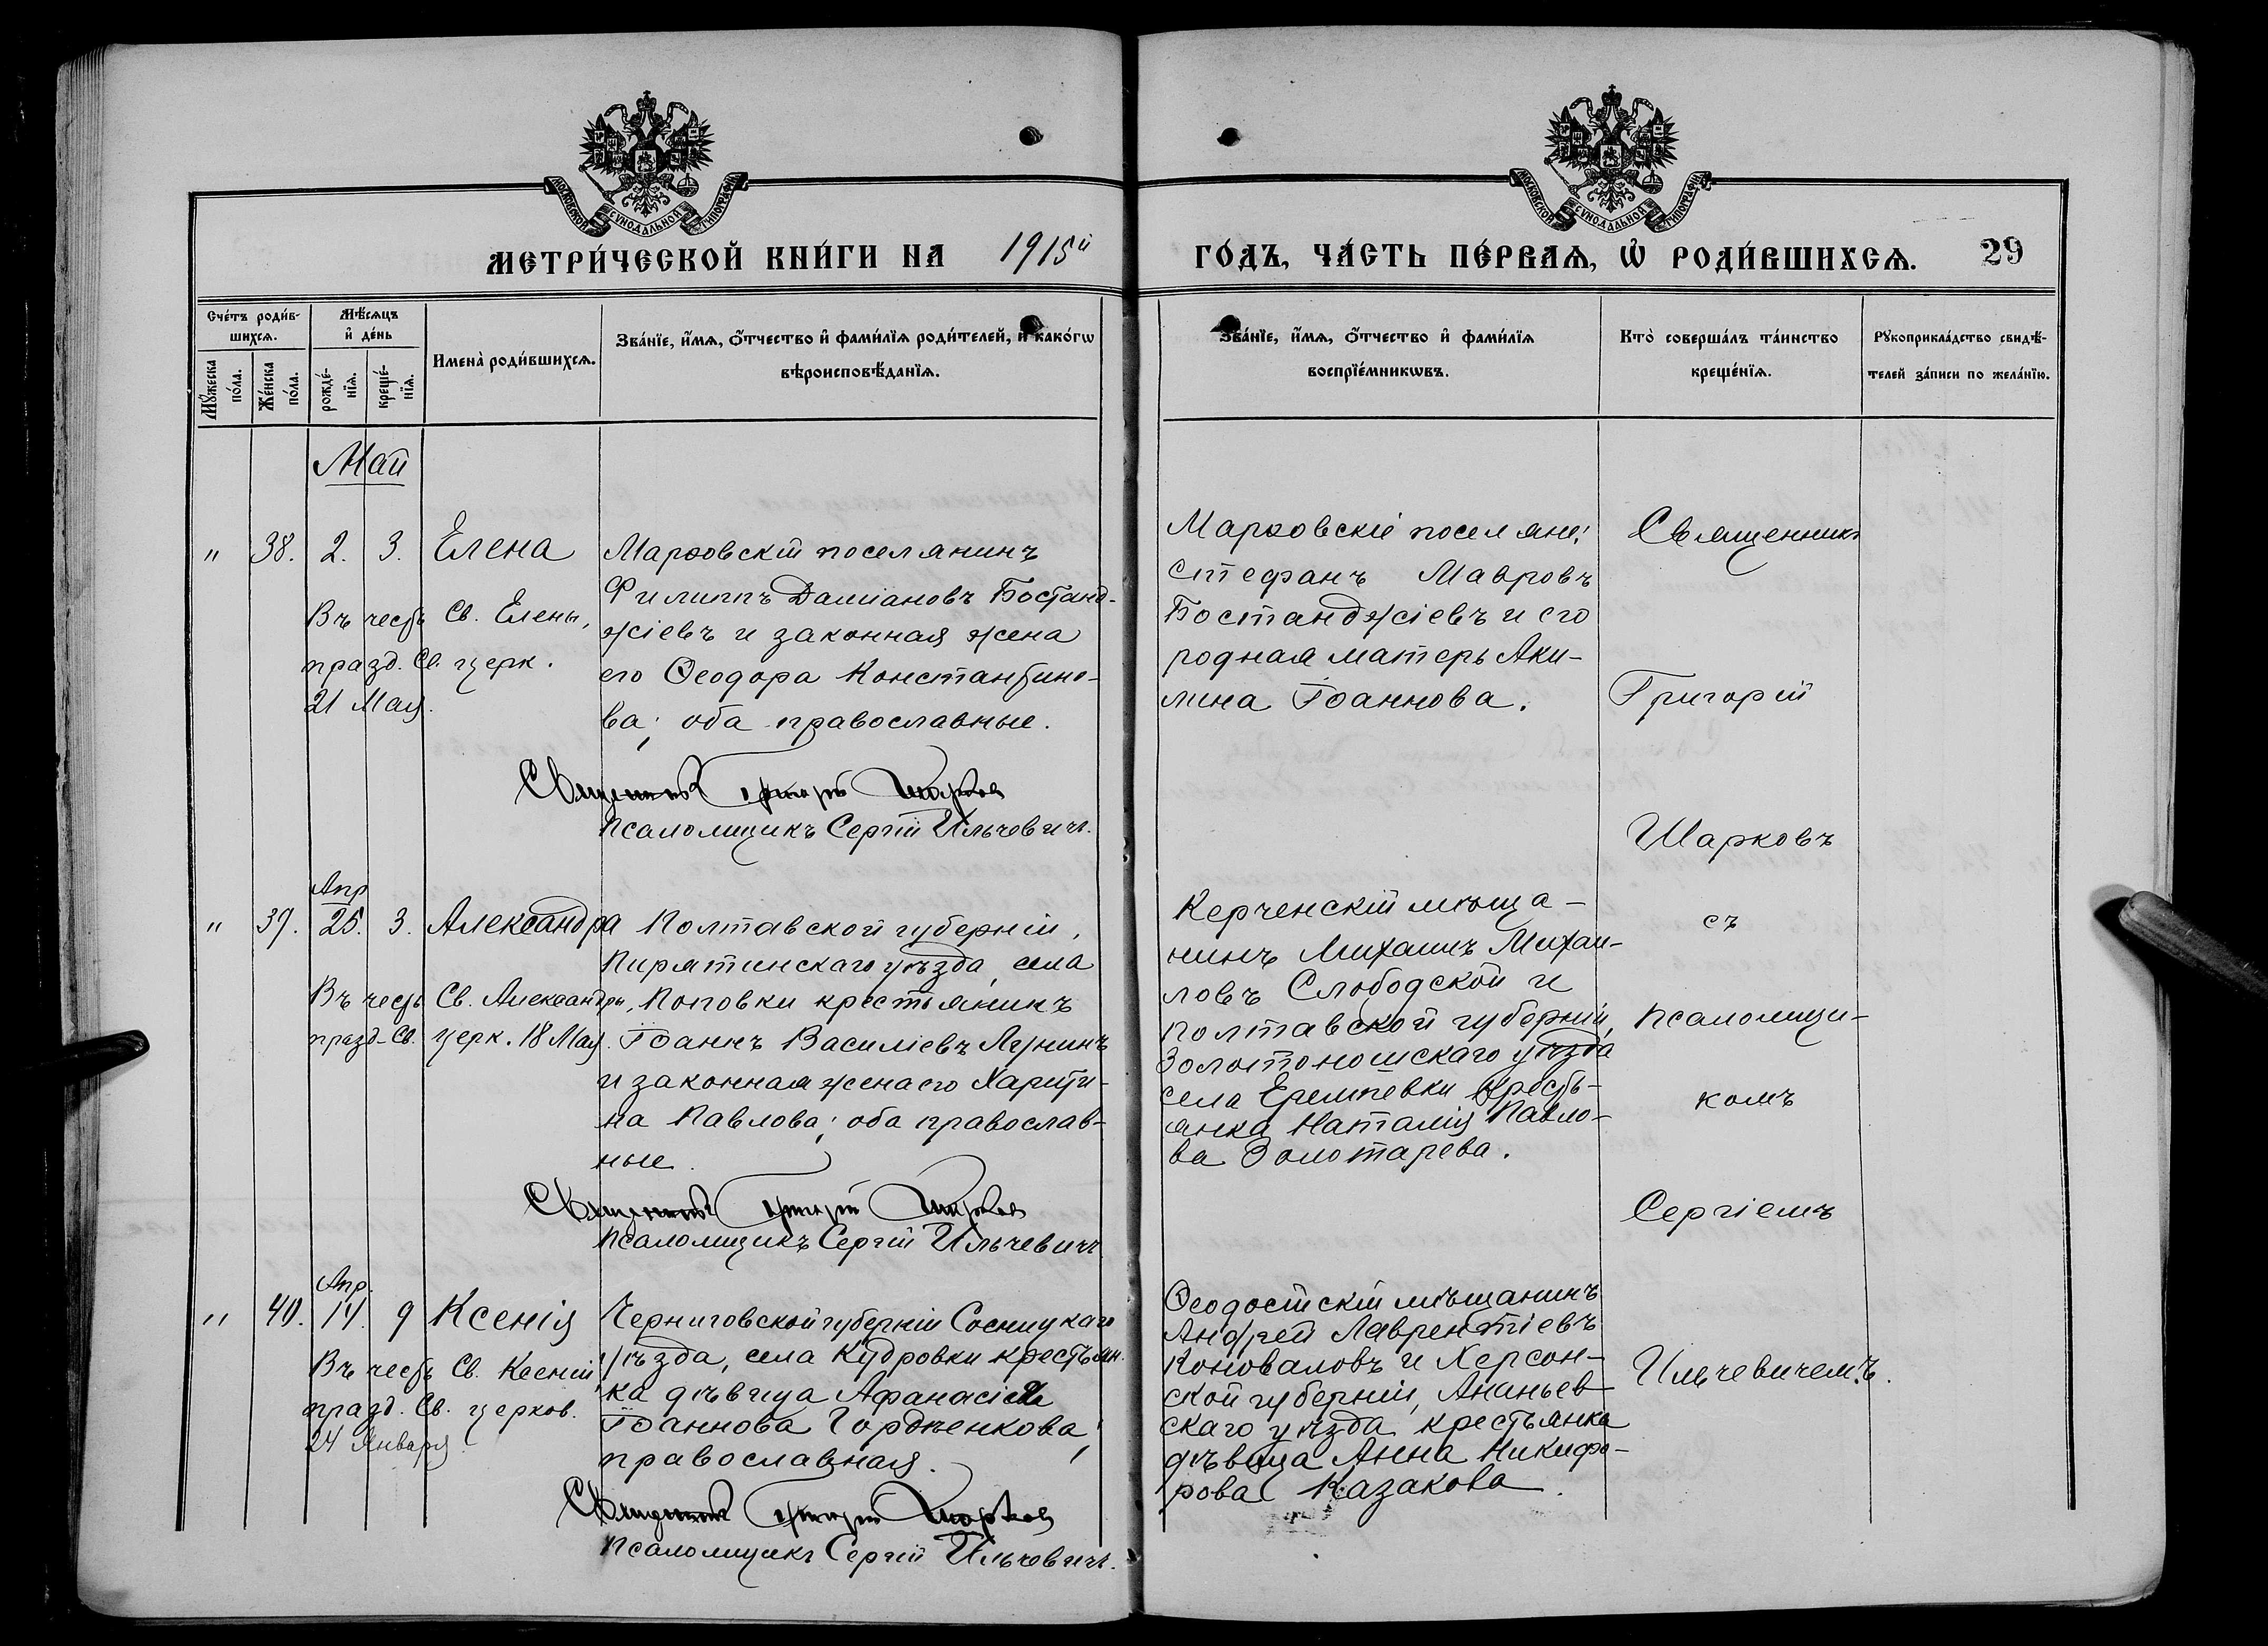 МОСКОВСКОЙ СѴНОДАЛЬНОЙ ТИПОГРАФІИ
МОСКОВСКОЙ СѴНОДАЛЬНОЙ ТИПОГРАФІИ
МЕТРИ́ЧЕСКОЙ КНИ́ГИ НА 1915й ГО́ДЪ, ЧА́СТЬ ПЕ́РВАѦ, Ѡ҆ РОДИ́ВШИХСѦ. 29
Сче́тъ роди́в-
шихсѧ.
Мꙋ́жеска по́ла.
Же́нска по́ла.
Мѣ́сѧцъ
и҆ де́нь
рожде́-
нїѧ.
креще́-
нїѧ.
Имена̀ роди́вшихсѧ.
Зва́нїе, и҆́мѧ, ѻ҆́тчество и҆ фами́лїѧ роди́телей, и҆ како́гѡ
вѣроисповѣ́данїѧ.
Зва́нїе, и҆́мѧ, ѻ҆́тчество и҆ фами́лїѧ
воспрїе́мникѡвъ.
Кто̀ соверша́лъ та́инство
креще́нїѧ.
Рꙋкоприкла́дство свидѣ́-
телей за́писи по жела́нїю.
Май
" 38. 2. 3. Елена
Въ честь Св. Елены,
празд. Св. церк.
21 Мая.
Марѳовскій поселянинъ
Филиппъ Даміановъ Бостанд-
жіевъ и законная жена
его Ѳеодора Константино-
ва; оба православные.
Священникъ Григорій Шарковъ
Псаломщикъ Сергій Ильчевичъ.
Марѳовскіе поселяне:
Стефанъ Мавровъ
Бостанджіевъ и его
родная матерь Аки-
лина Іоаннова.
Священникъ
Григорій
Шарковъ
съ
Псаломщи-
комъ
Сергіемъ
Ильчевичемъ.
Апр
" 39. 25. 3. Александра
Въ честь Св. Александры,
празд. Св. церк. 18 Мая.
Полтавской губерніи,
Пирятинскаго уѣзда, села
Поповки крестьянинъ
Іоаннъ Василіевъ Ягнинъ
и законная жена его Харити-
на Павлова; оба православ-
ные.
Священникъ Григорій Шарковъ
Псаломщикъ Сергій Ильчевичъ
Керченскій мѣща-
нинъ Михаилъ Михаи-
ловъ Слободской и
Полтавской губерніи,
Золотоношскаго уѣзда
села Еремѣевки кресть-
янка Наталія Павло-
ва Золотарева.
Апр.
" 40. 14. 9 Ксенія
Въ честь Св. Ксеніи,
празд. Св. церков.
24 Января.
Черниговской губерніи Сосницкаго
уѣзда, села Кудровки крестьян-
ка дѣвица Афанасія
Іоаннова Гордѣенкова,
православная.
Священникъ Григорій Шарковъ
Псаломщикъ Сергій Ильчевичъ.
Ѳеодосійскій мѣщанинъ
Андрей Лаврентіевъ
Коноваловъ и Херсон-
ской губерніи, Ананьев-
скаго уѣзда крестьянка
дѣвица Анна Никифо-
рова Казакова.